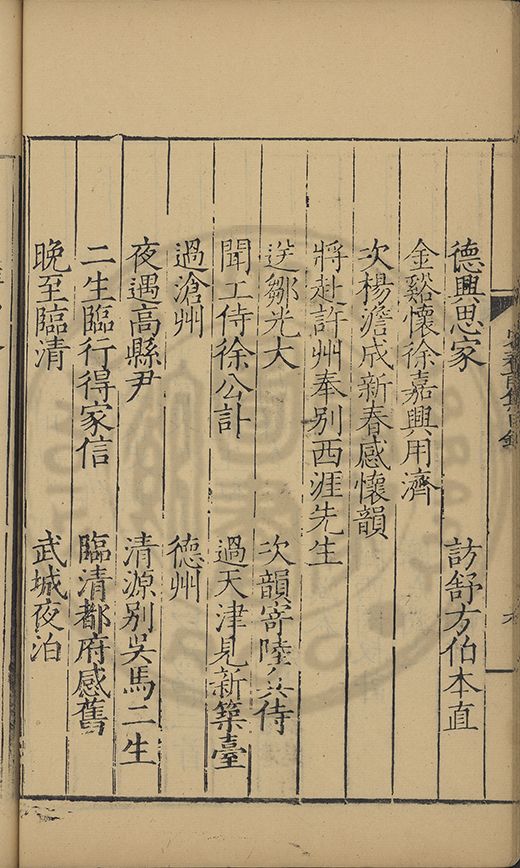 德興思家　訪舒方伯本直
金谿懷徐嘉興用濟
次楊澹成新春感懷韻
將赴許州奉別西涯先生
送鄒光大　次韻寄陸兵侍
聞工侍徐公訃　過天津見新築臺
過滄州　德州
夜遇高縣尹　清源別吳馬二生
二生臨行得家信　臨清都府感舊
晚至臨清　武城夜泊